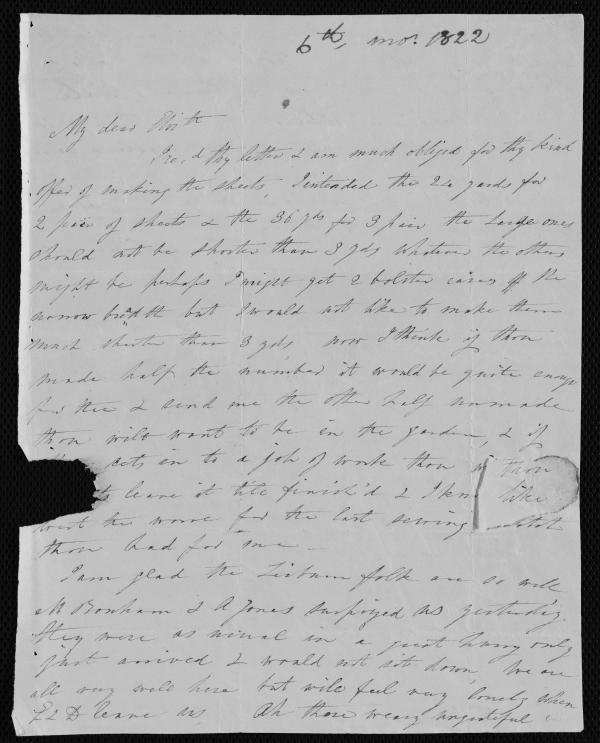 6th, mo. 1822
My dear
I rec.d thy letter & am much obliged for thy kind
offer of making the sheets, I intended the 24 yards for
2 pair of sheets & the 36 yds for 3 pair the Large ones
should not be shorter than 3 yds whatever the others
might be perhaps I might get 2 bolster cases off the
narrow bredth but I would not like to make them
much shorter than 3 yds now I think if thou
made half the number it would be quite enough
for thee & send me the other half unmade
thou wilt want to be in the garden, & if
sets in to a job of work thou
leave it till finish'd & I like
the worse for the last sewing
thou had for me —
I am glad the Lisburn folk are so well
M Bonham & A Jones surprized us yesterday.
They were as usual in a great hurry only
just arrived & would not sit down We are
all very well here but will feel very lonely when
E & D leave us Ah those weary ungrateful